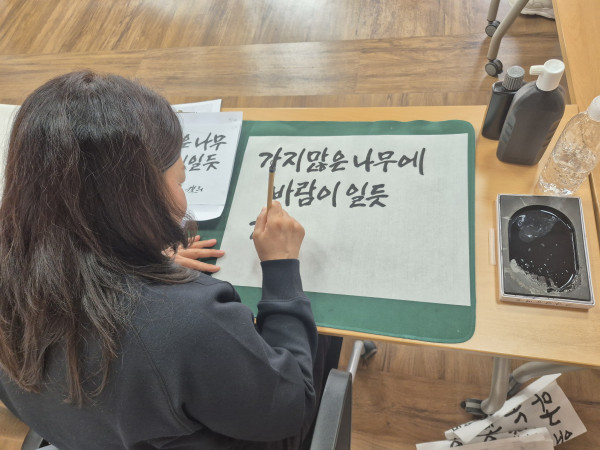 가지많은 나무에
바람이 일듯
나무
일듯